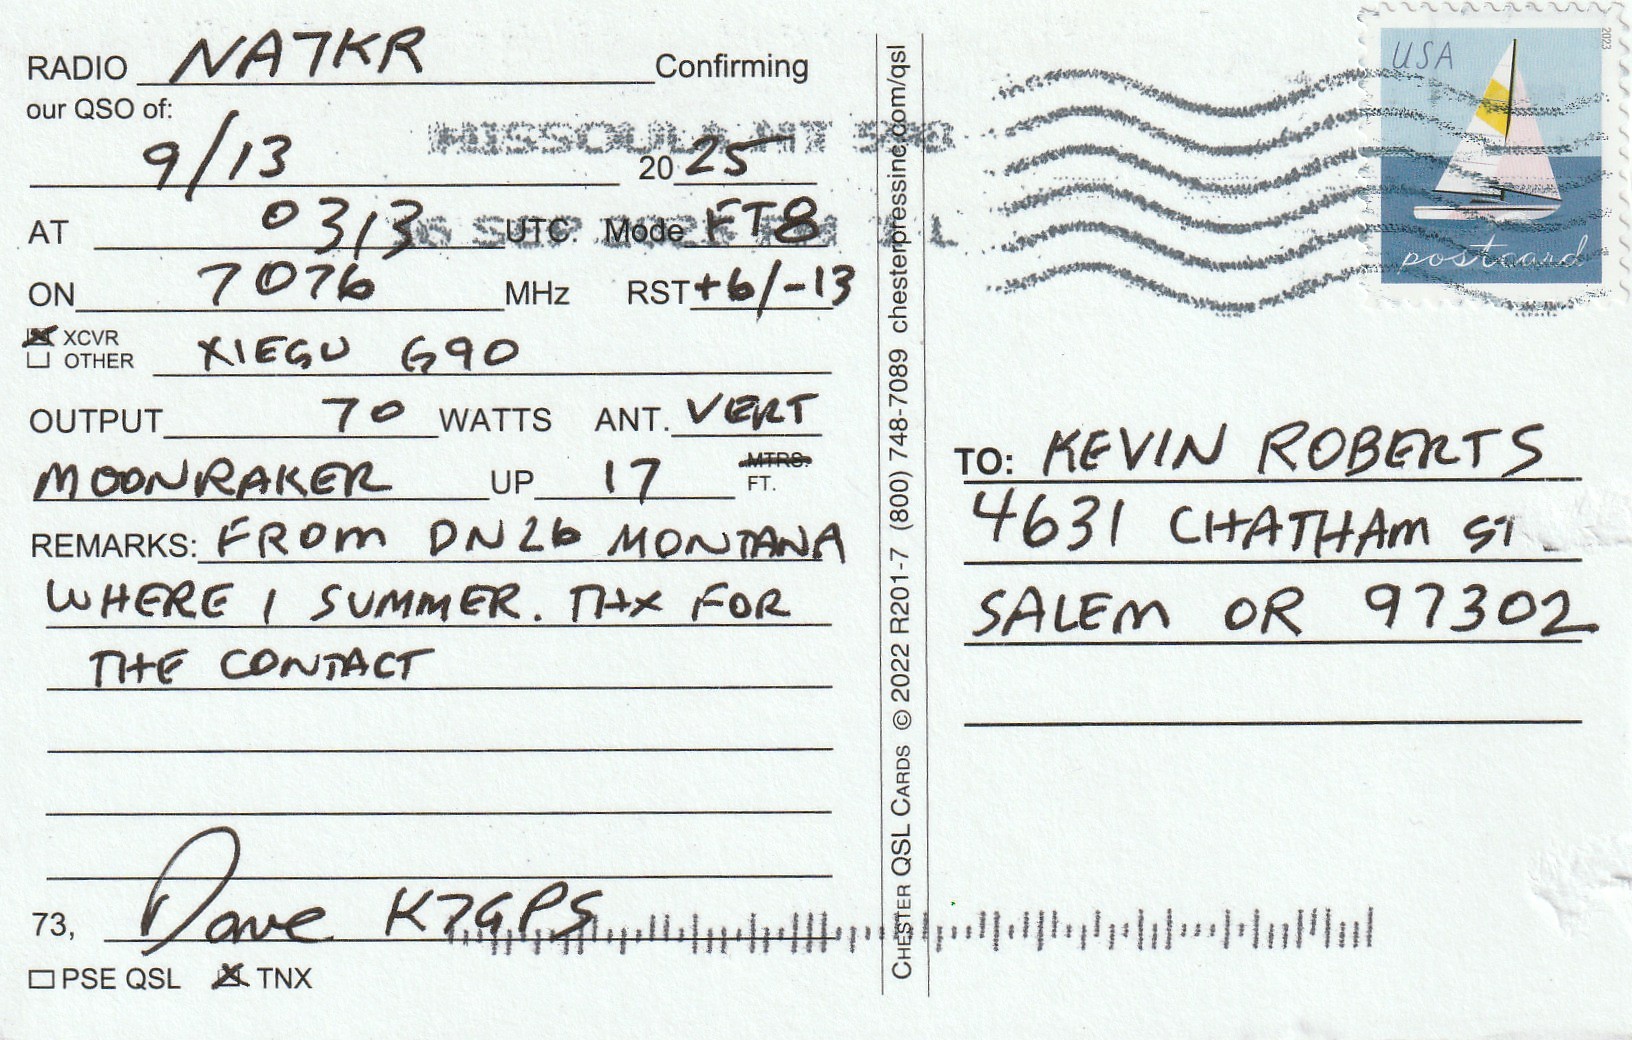 RADIO NA7KR Confirming
our QSO of:
9/13 2025
AT 0313 UTC Mode FT8
ON 7076 MHz RST +6/-13
XCVR
OTHER XIEGU G90
OUTPUT 70 WATTS ANT. VERT
MOONRAKER UP 17 MTRS. FT.
REMARKS: FROM DN26 MONTANA
WHERE I SUMMER. THX FOR
THE CONTACT
73, Dave K7GPS
PSE QSL TNX
CHESTER QSL CARDS © 2022 R201-7 (800) 748-7089 chesterpressinc.com/qsl
MISSOULA MT
SEP
USA
2023
postcard
TO: KEVIN ROBERTS
4631 CHATHAM ST
SALEM OR 97302